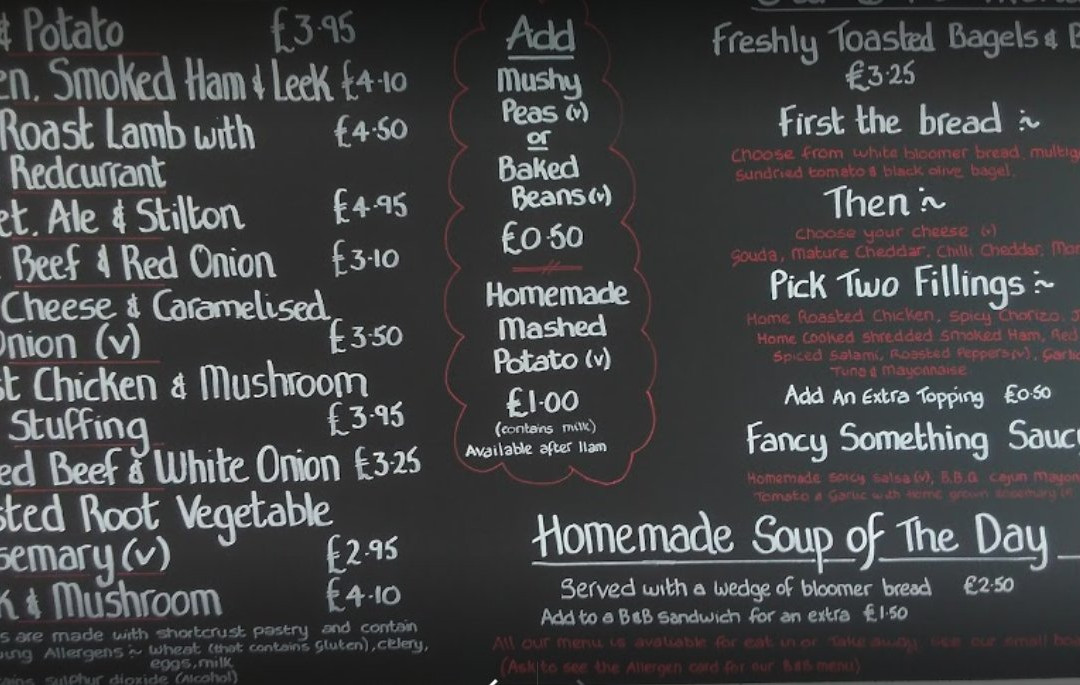 & Potato £3.95
en, Smoked Ham & Leek £4.10
Roast Lamb with £4.50
Redcurrant
et, Ale & Stilton £4.95
Beef & Red Onion £3.10
Cheese & Caramelised
Onion (v) £3.50
st Chicken & Mushroom
Stuffing £3.95
ed Beef & White Onion £3.25
sted Root Vegetable
semary (v) £2.95
k & Mushroom £4.10
s are made with shortcrust pastry and contain
ing Allergens :~ wheat (that contains gluten), celery,
eggs, milk
ains sulphur dioxide (Alcohol)
Add
Mushy
Peas (v)
or
Baked
Beans (v)
£0.50
Homemade
Mashed
Potato (v)
£1.00
(contains milk)
Available after 11am
Freshly Toasted Bagels & B
£3.25
First the bread :~
Choose from white bloomer bread, multig
Sundried tomato & black olive bagel,
Then :~
Choose your cheese (v)
Gouda, Mature Cheddar, Chilli Cheddar, Mar
Pick Two Fillings :~
Home Roasted Chicken, Spicy Chorizo, J
Home Cooked shredded Smoked Ham, Red
Spiced Salami, Roasted Peppers (v), Garlic
Tuna & Mayonnaise
Add An Extra Topping £0.50
Fancy Something Saucy
Homemade spicy salsa (v), B.B.Q, cajun Mayon
Tomato & Garlic with home grown rosemary
Homemade Soup of The Day
Served with a wedge of bloomer bread £2.50
Add to a B&B Sandwich for an extra £1.50
All our menu is available for eat in or take away, see our small bo
(Ask to see the Allergen card for our B&B menu)